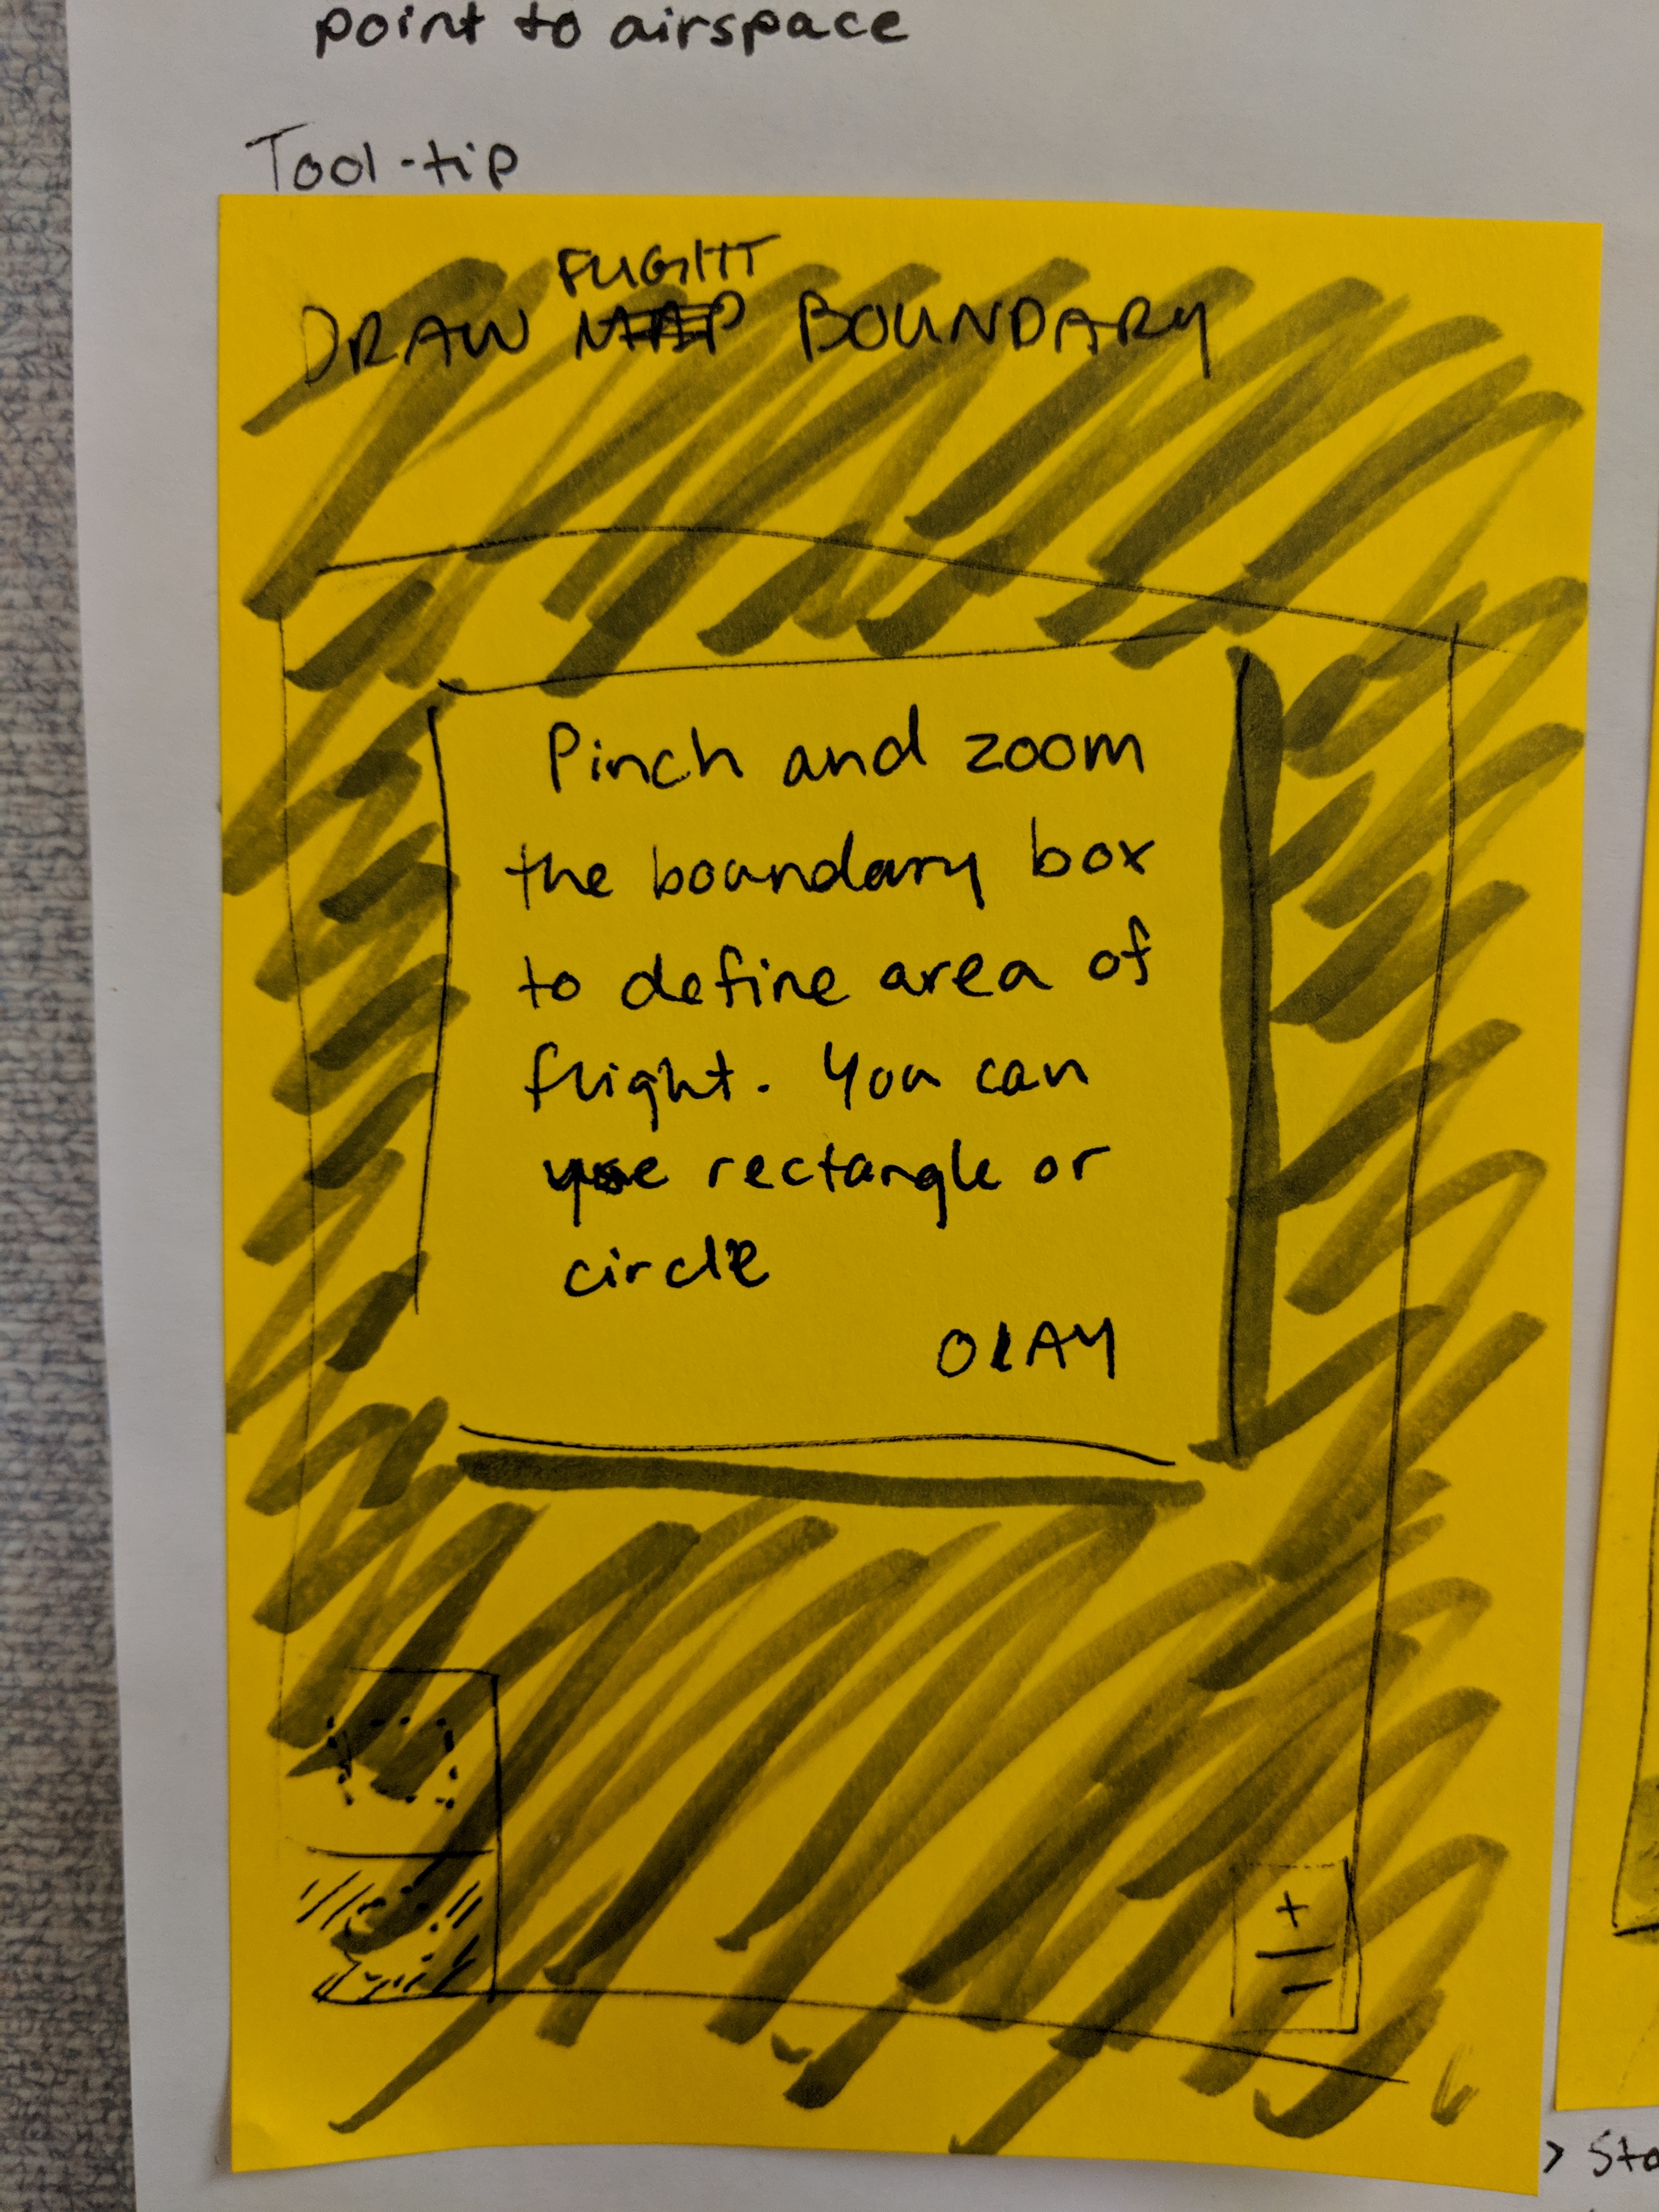 point to airspace
Tool-tip
FLIGHT
DRAW MAP BOUNDARY
Pinch and zoom
the boundary box
to define area of
flight. You can
use rectangle or
circle
OKAY
+
-
> Sta